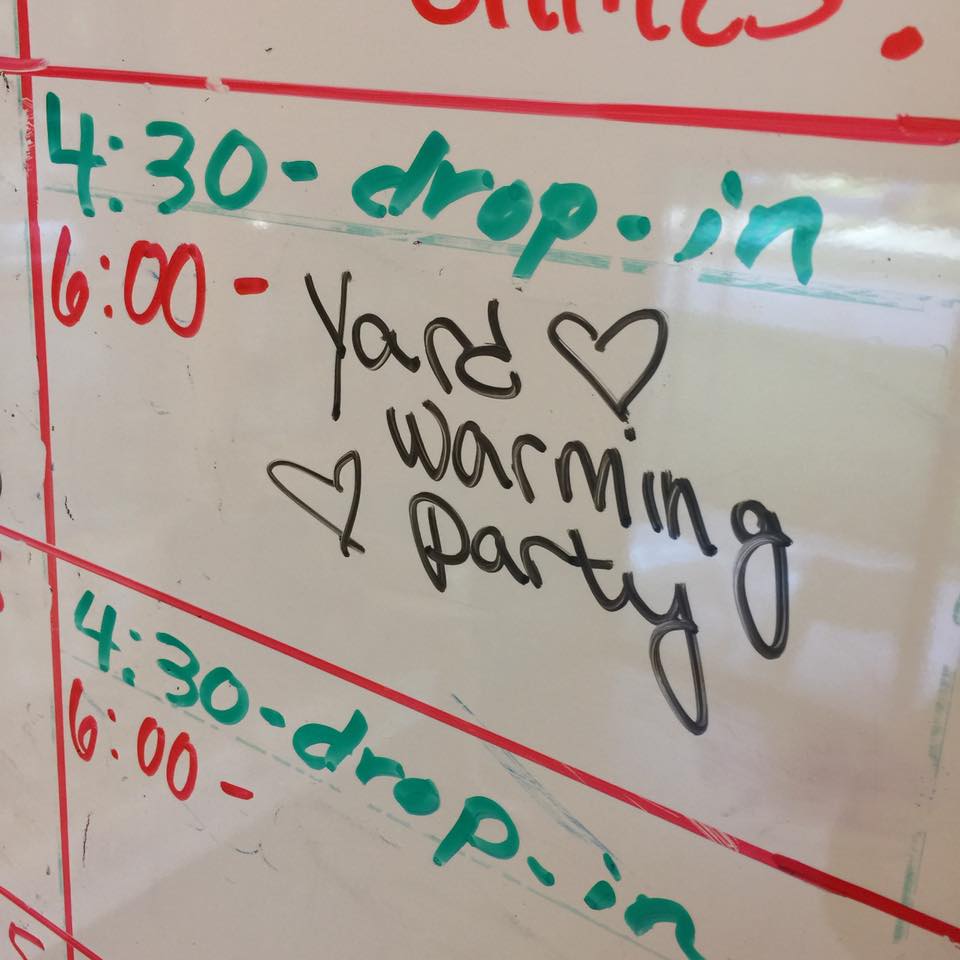 4:30 - drop-in
6:00 - Yard
warming
Party
4:30 - drop-in
6:00 -